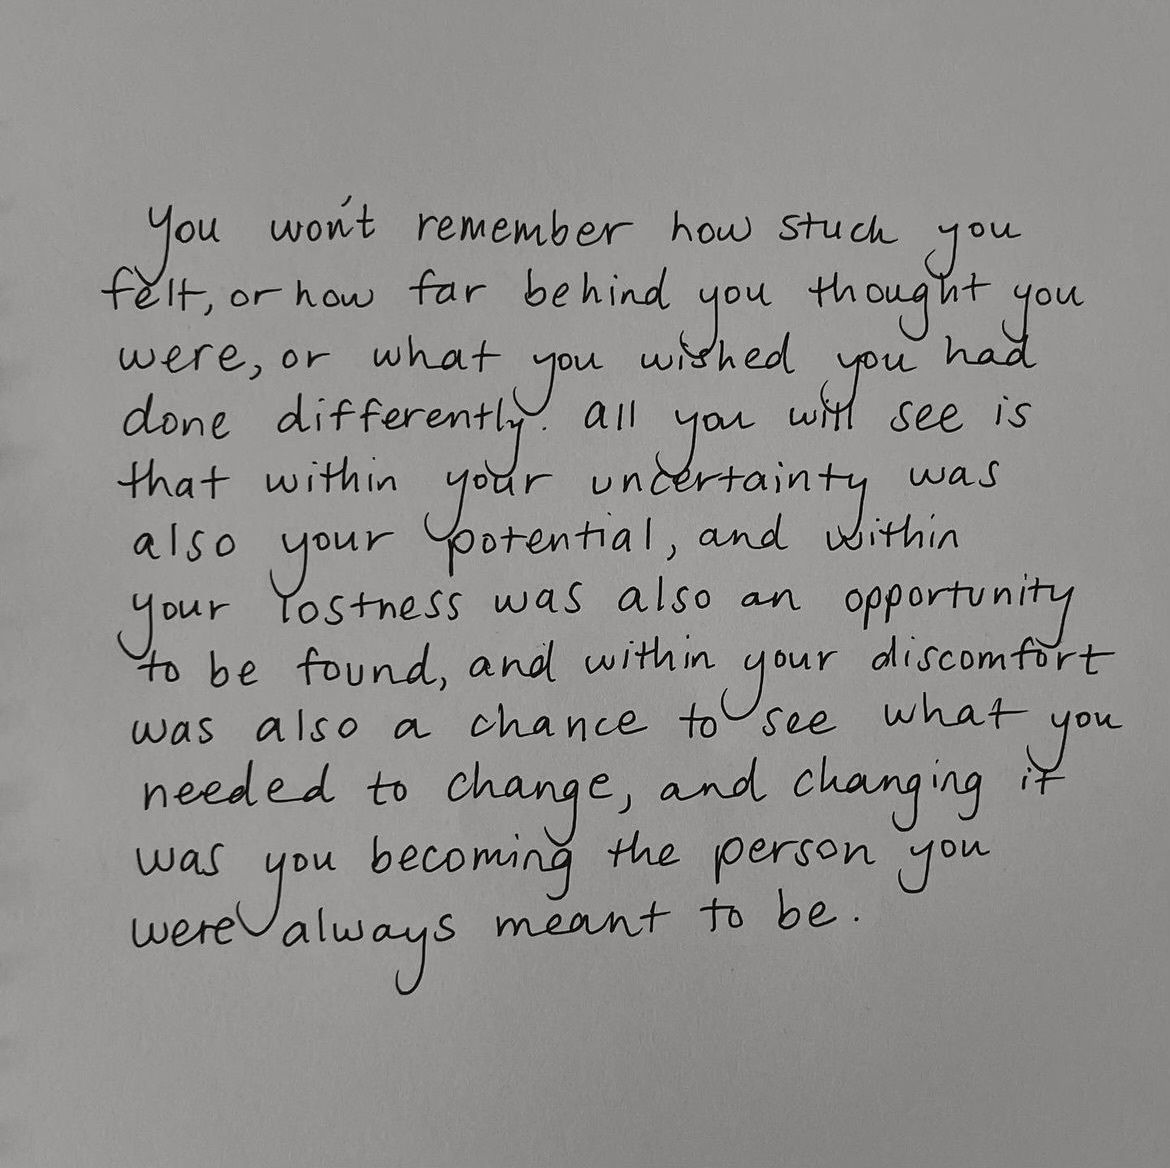 you won't remember how stuck you
felt, or how far behind you thought you
were, or what you wished you had
done differently. all you will see is
that within your uncertainty was
also your potential, and within
your lostness was also an opportunity
to be found, and within your discomfort
was also a chance to see what you
needed to change, and changing it
was you becoming the person you
were always meant to be.